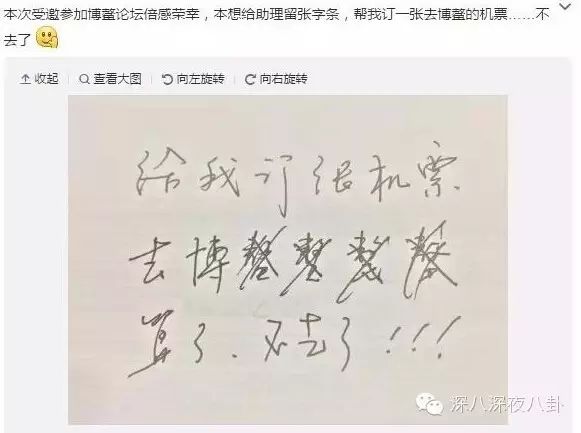 本次受邀参加博鳌论坛倍感荣幸，本想给助理留张字条，帮我订一张去博鳌的机票……不
去了
收起 查看大图 向左旋转 向右旋转
给我订张机票
去博
算了．不去了!!!
深八深夜八卦